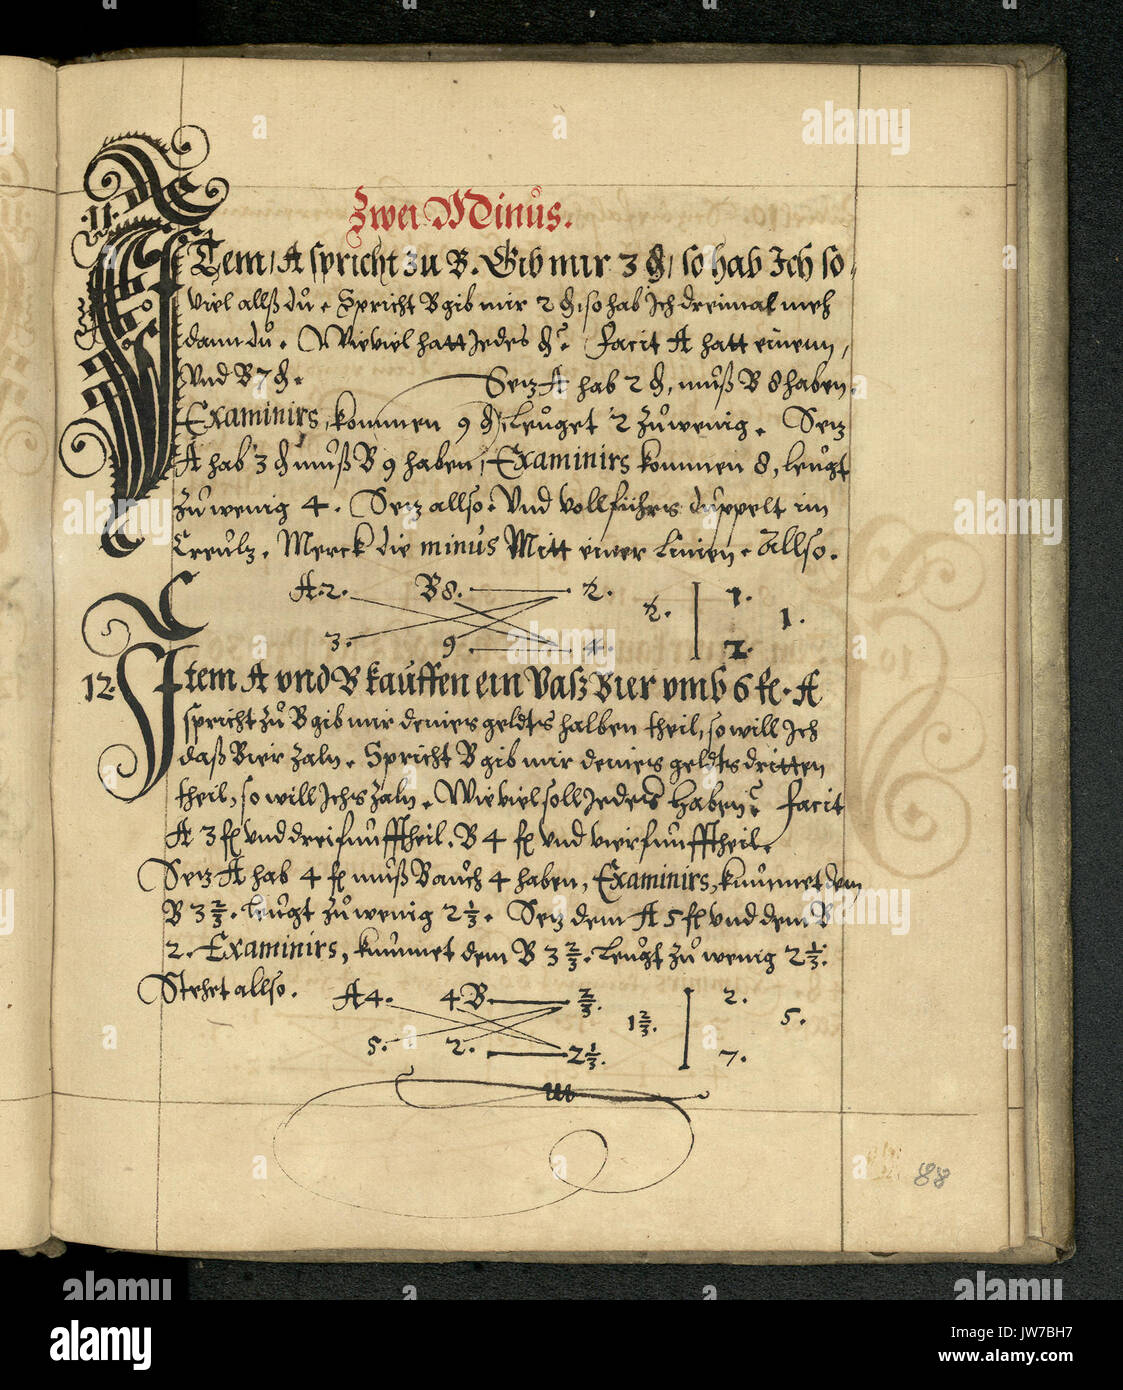 Zwei Minus.
11.
ITem / A spricht zu B. Gib mir 3 ₰ / so hab Ich so
viel allß du. Spricht B gib mir 2 ₰, so hab Ich dreimal meh
dann du. Wieviel hatt Jedes ₰? Facit A hatt einenn,
Und B 7 ₰. Setz A hab 2 ₰, muß B 8 haben.
Examinirs, kommen 9 ₰, leuget 2 zu wenig. Setz
A hab 3 ₰ muß B 9 haben, Examinirs kommen 8, leugt
zu wenig 4. Setz allso. Und vollführs duppelt im
Creutz. Merck die minus Mitt einer linien. Allso.
A. 2. B 8. 2. 2. 1. 1.
3. 9 4. 2.
12. Item A und B kauffen ein Vasz Bier umb 6 fl. A
spricht zu B gib mir deines geldts halben theil, so will Ich
daß Bier zaln. Spricht B gib mir deines geldts dritten
theil, so will Ichs zaln. Wieviel soll Jedes haben? Facit
A 3 fl und drei fünfftheil. B 4 fl und vier fünfftheil.
Setz A hab 4 fl muß B auch 4 haben, Examinirs, kummet dem
B 3 2/3. leugt zu wenig 2 1/3. Setz dem A 5 fl und dem B
2. Examinirs, kummet dem B 3 2/3. leugt zu wenig 2 1/3.
Stehet allso. A 4. 4 B 2/3. 1 2/3. 2. 5.
5. 2. 2 1/3. 7.
88
alamy
Image ID: JW7BH7
www.alamy.com